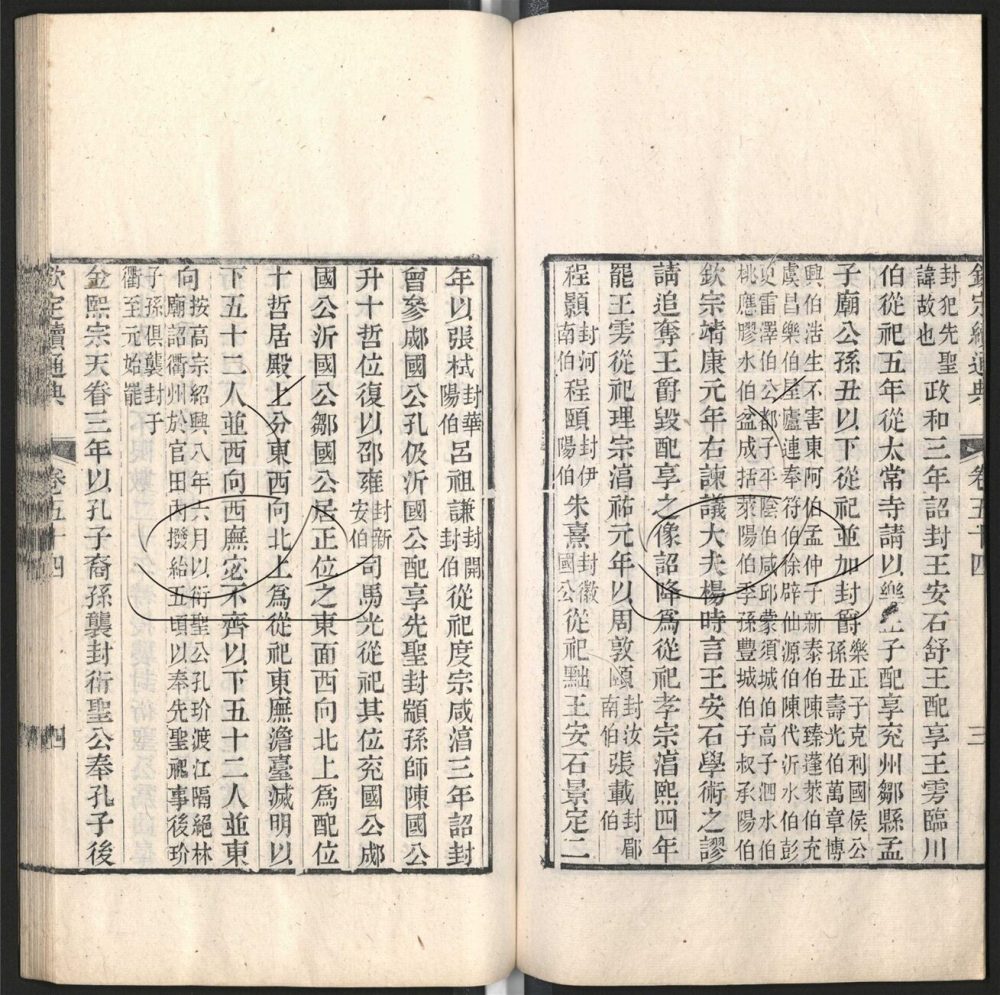 欽定續通典 卷五十四 三
封犯先聖諱故也 政和三年詔封王安石舒王配享王雱臨川
伯從祀五年從太常寺請以樂正子配享兗州鄒縣孟
子廟公孫丑以下從祀並加封爵樂正子克利國侯公孫丑壽光伯萬章博
興伯浩生不害東阿伯孟仲子新泰伯陳臻蓬萊伯充
虞昌樂伯屋廬連奉符伯徐辟仙源伯陳代沂水伯彭
更雷澤伯公都子平陰伯咸邱蒙須城伯高子泗水伯
桃應膠水伯盆成括萊陽伯季孫豐城伯子叔承陽伯
欽宗靖康元年右諫議大夫楊時言王安石學術之謬
請追奪王爵毀配享之像詔降爲從祀孝宗湻熙四年
罷王雱從祀理宗湻祐元年以周敦頤封汝南伯張載封郿伯
程顥封河南伯程頤封伊陽伯朱熹封徽國公從祀黜王安石景定二
年以張栻封華陽伯呂祖謙封開封伯從祀度宗咸湻三年詔封
曾參郕國公孔伋沂國公配享先聖封顓孫師陳國公
升十哲位復以邵雍封新安伯司馬光從祀其位兗國公郕
國公沂國公鄒國公居正位之東面西向北上爲配位
十哲居殿上分東西向北上爲從祀東廡澹臺滅明以
下五十二人並西向西廡宓不齊以下五十二人並東
向按高宗紹興八年六月以衍聖公孔玠渡江隔絕林
廟詔衢州於官田內撥給五頃以奉先聖祀事後玠
子孫俱襲封于
衢至元始罷
金熙宗天眷三年以孔子裔孫襲封衍聖公奉孔子後
欽定續通典 卷五十四 四